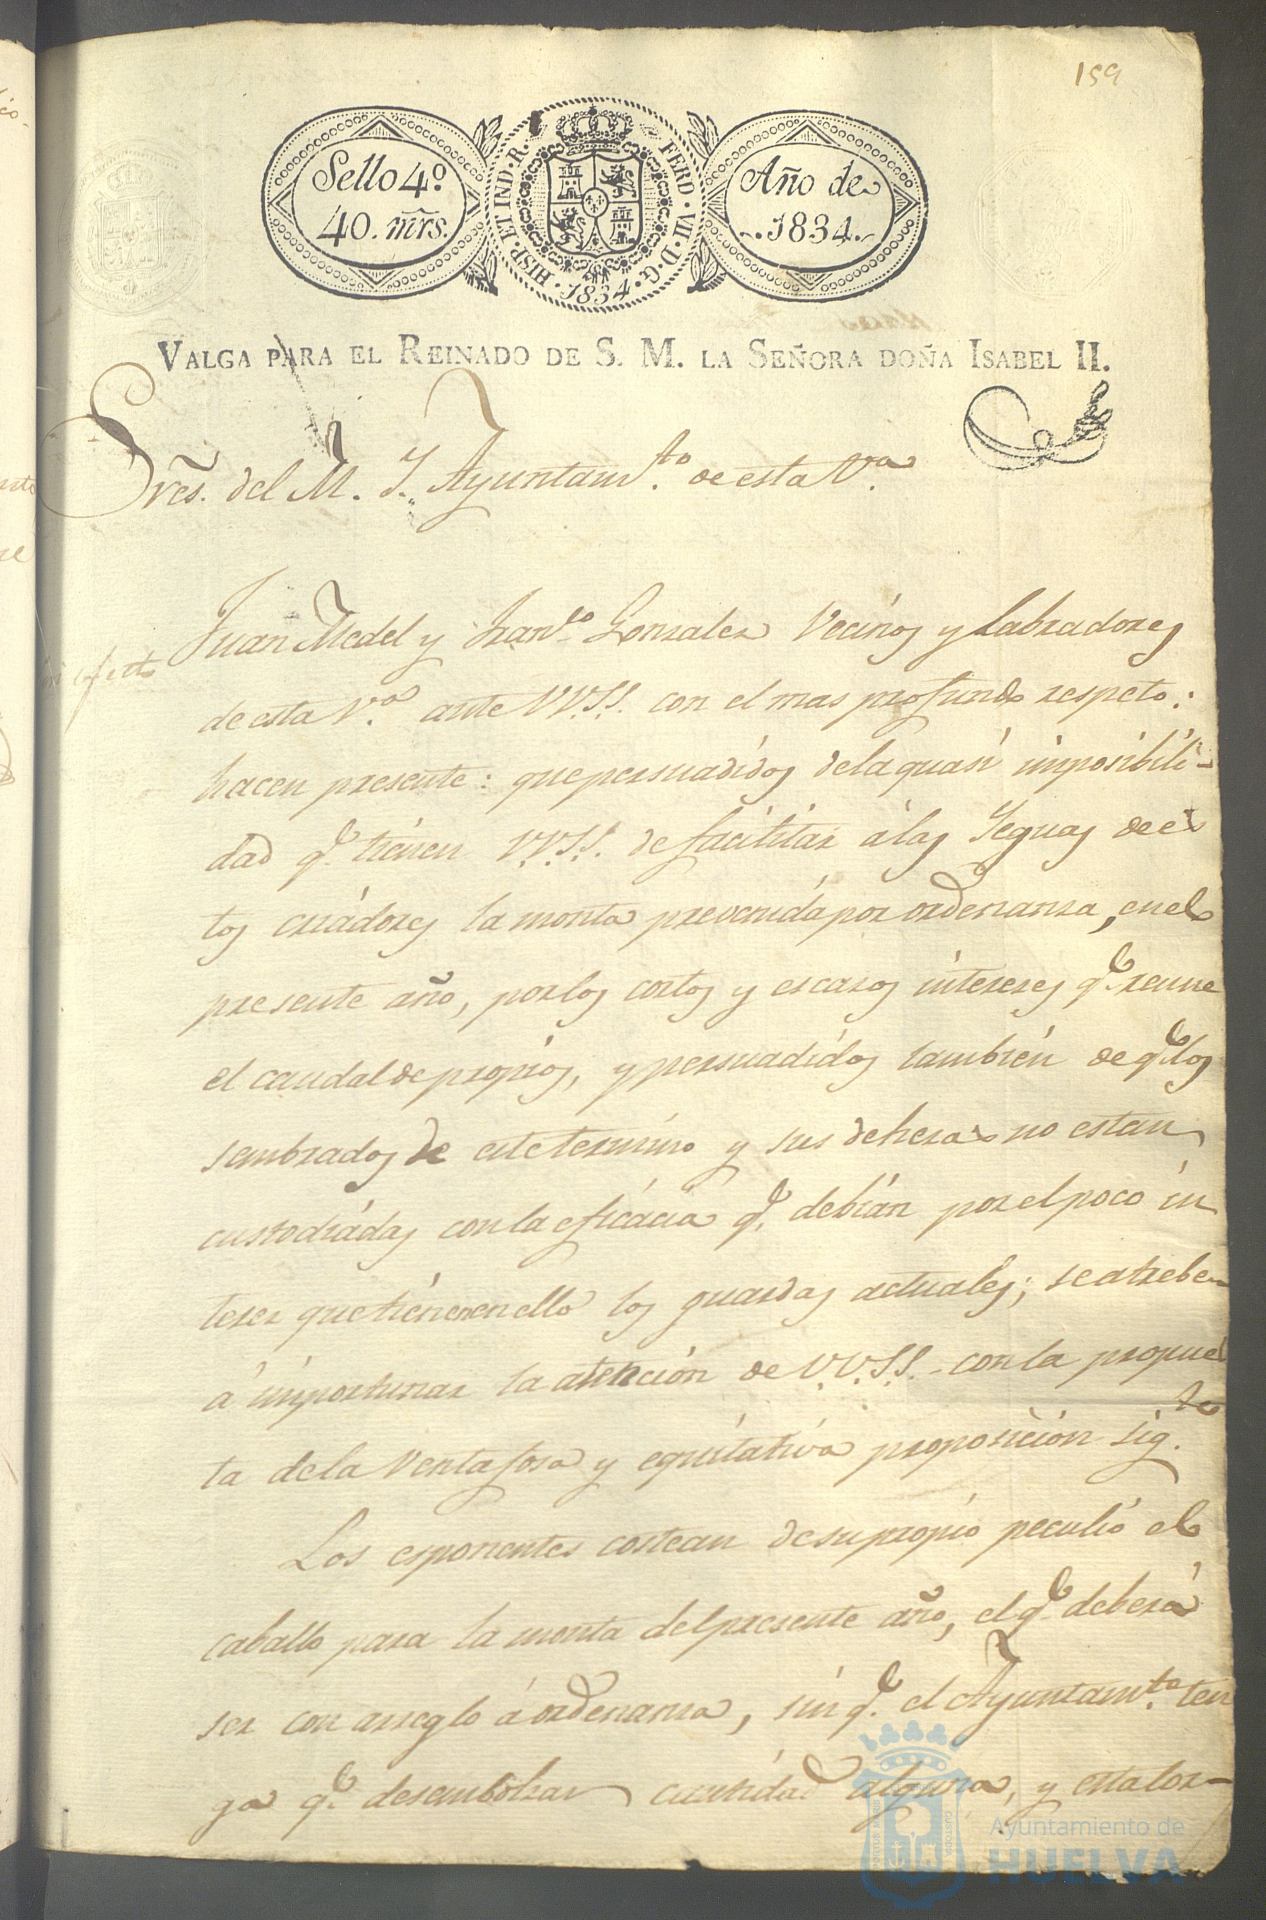 159
Sello 4º
40. mrs.
HISP. ET IND. R. FERD. VII. D. G. 1834.
Año de
1834.
VALGA PARA EL REINADO DE S. M. LA SEÑORA DOÑA ISABEL II.
Sres. del M. Y. Ayuntamto. de esta Va.
Juan Medel y Franco. Gonzalez Vecinos y Labradores
de esta Va. ante VV.SS. con el mas profundo respeto:
hacen presente: que persuadidos de la quasi imposibili-
dad q.e tienen V.V.S.S. de facilitar á las Yeguas de es
tos criadores la monta prevenida por ordenanza, en el
presente año, por los cortos y escasos intereses q.e reune
el caudal de propios, y persuadidos también de q.e los
sembrados de este termino y sus dehesas no estan
custodiadas con la eficacia q.e debian por el poco in
teres que tienen en ello los guardas actuales; se atreben
á importunar la atención de V.V.S.S. con la propues
ta de la ventajosa y equitativa proposición sigte.
Los esponentes costean de su propio peculio el
caballo para la monta del presente año, el q.e deberá
ser con arreglo á ordenanza, sin q.e el Ayuntamto. ten
ga q.e desembolsar cantidad alguna, y esta lor-
Ayuntamiento de
HUELVA